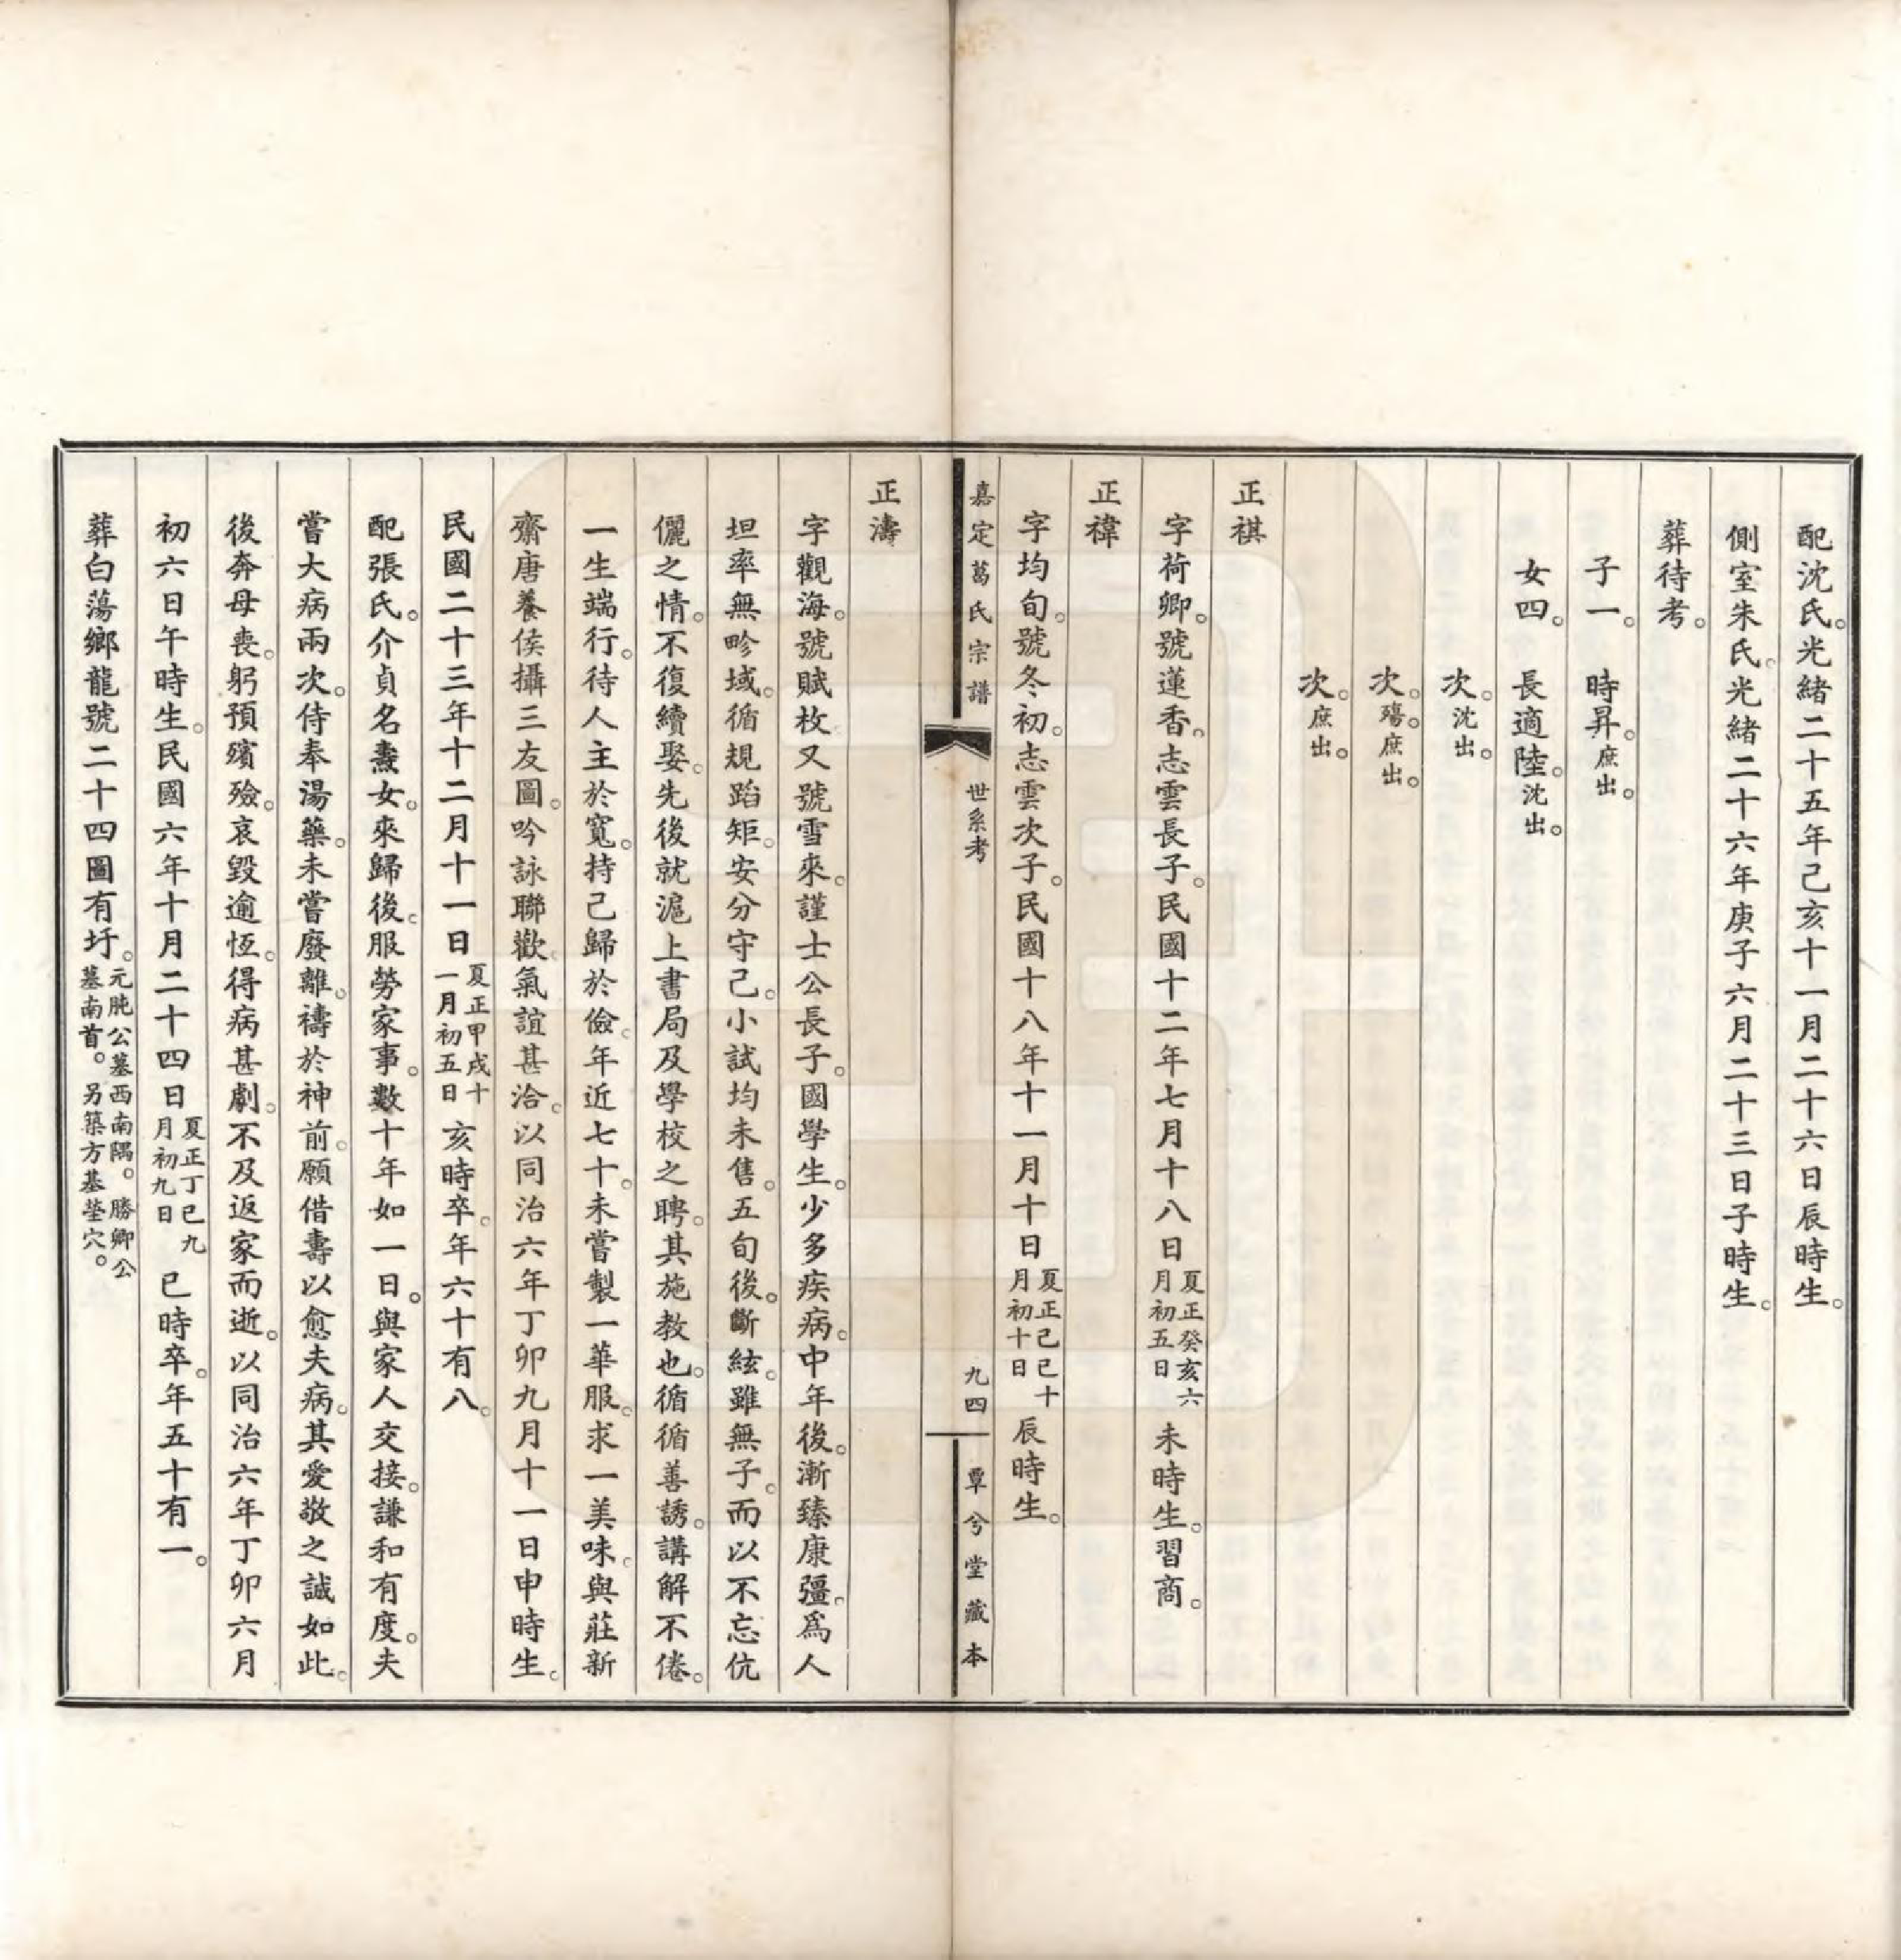 配沈氏。光緒二十五年己亥十一月二十六日辰時生。
側室朱氏。光緒二十六年庚子六月二十三日子時生。
葬待考。
子一。 時昇。庶出。
女四。 長適陸。沈出。
次。沈出。
次。殤。庶出。
次。庶出。
正祺
字荷卿。號蓮香。志雲長子。民國十二年七月十八日夏正癸亥六月初五日未時生。習商。
正禕
字均旬。號冬初。志雲次子。民國十八年十一月十日夏正己巳十月初十日辰時生。
嘉定葛氏宗譜 世系考 九四 覃兮堂藏本
正濤
字觀海。號賦枚又號雪來。謹士公長子。國學生。少多疾病。中年後。漸臻康彊。爲人
坦率無畛域。循規蹈矩。安分守己。小試均未售。五旬後。斷絃。雖無子。而以不忘伉
儷之情。不復續娶。先後就滬上書局及學校之聘。其施教也。循循善誘。講解不倦。
一生端行。待人主於寬。持己歸於儉。年近七十。未嘗製一華服。求一美味。與莊新
齋唐養侯攝三友圖。吟詠聯歡。氣誼甚洽。以同治六年丁卯九月十一日申時生。
民國二十三年十二月十一日夏正甲戌十一月初五日亥時卒。年六十有八。
配張氏。介貞名燾女。來歸後。服勞家事。數十年如一日。與家人交接。謙和有度。夫
嘗大病兩次。侍奉湯藥。未嘗廢離。禱於神前。願借壽以愈夫病。其愛敬之誠如此。
後奔母喪。躬預殯殮。哀毀逾恆。得病甚劇。不及返家而逝。以同治六年丁卯六月
初六日午時生。民國六年十月二十四日夏正丁巳九月初九日巳時卒。年五十有一。
葬白蕩鄉龍號二十四圖有圩。元肫公墓西南隅。勝卿公墓南首。另築方墓塋穴。